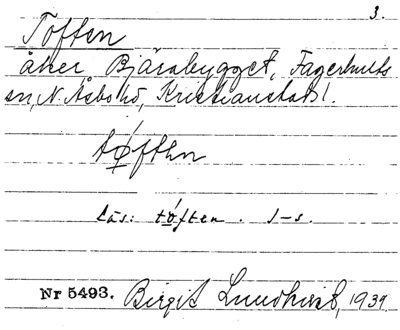 3.
Toften
åker Bjärabygget, Fagerhults
sn, N. Åsbo hd, Kristianstads l.
tøften
läs: tøften. 1-s.
Nr 5493. Birgit Lundkvist, 1939